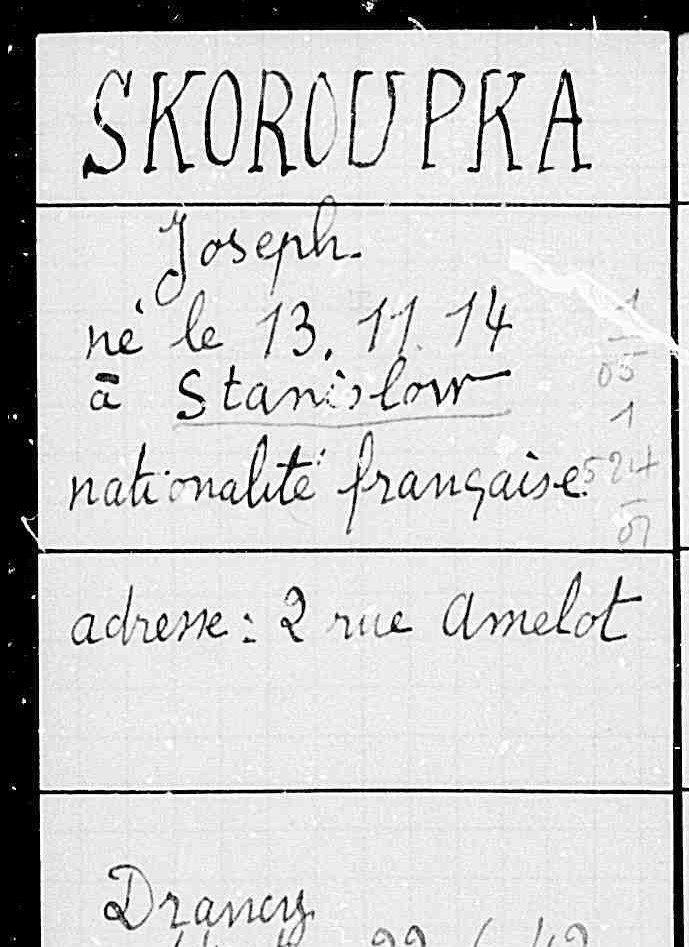 SKOROUPKA
Joseph.
né le 13.11.14
à Stanislow
nationalité française.
1
05
1
524
adresse : 2 rue Amelot
Drancy